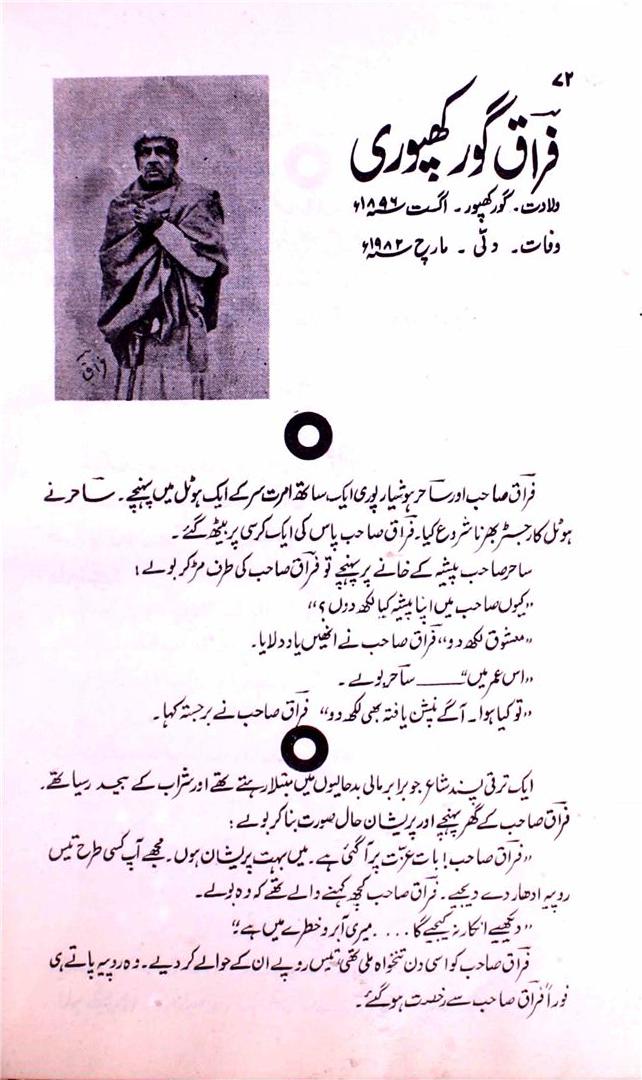 ۷۲
فراقؔ گورکھپوری
ولادت۔ گورکھپور۔ اگست ۱۸۹۶ء
وفات۔ دلّی۔ مارچ ۱۹۸۲ء
فراقؔ
فراقؔ صاحب اور ساحرؔ ہوشیارپوری ایک ساتھ امرت سر کے ایک ہوٹل میں پہنچے۔ ساحرؔ نے
ہوٹل کا رجسٹر بھرنا شروع کیا۔ فراقؔ صاحب پاس کی ایک کرسی پر بیٹھ گئے۔
ساحرؔ صاحب پیشہ کے خانے پر پہنچے تو فراقؔ صاحب کی طرف مڑ کر بولے:
"کیوں صاحب میں اپنا پیشہ کیا لکھ دوں؟"
"معشوق لکھ دو" فراقؔ صاحب نے انھیں یاد دلایا۔
"اس عمر میں" ــــــ ساحرؔ بولے۔
"تو کیا ہوا۔ آگے پنشن یافتہ بھی لکھ دو" فراقؔ صاحب نے برجستہ کہا۔
ایک ترقی پسند شاعر جو برابر مالی بدحالیوں میں مبتلا رہتے تھے اور شراب کے بیحد رسیا تھے۔
فراقؔ صاحب کے گھر پہنچے اور پریشان حال صورت بنا کر بولے:
"فراقؔ صاحب! بات عزّت پر آ گئی ہے۔ میں بہت پریشان ہوں۔ مجھے آپ کسی طرح تیس
روپیہ ادھار دے دیجیے۔ فراقؔ صاحب کچھ کہنے والے تھے کہ وہ بولے۔
"دیکھیے انکار نہ کیجیے گا .... میری آبرو خطرے میں ہے"۔
فراقؔ صاحب کو اسی دن تنخواہ ملی تھی تیس روپے ان کے حوالے کر دیے۔ وہ روپیہ پاتے ہی
فوراً فراقؔ صاحب سے رخصت ہو گئے۔